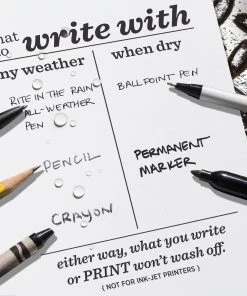 write with
weather
when dry
RITE IN THE RAIN
ALL-WEATHER
PEN
BALLPOINT PEN
PENCIL
PERMANENT
MARKER
CRAYON
either way, what you write
or PRINT won't wash off.
{ NOT FOR INK-JET PRINTERS }